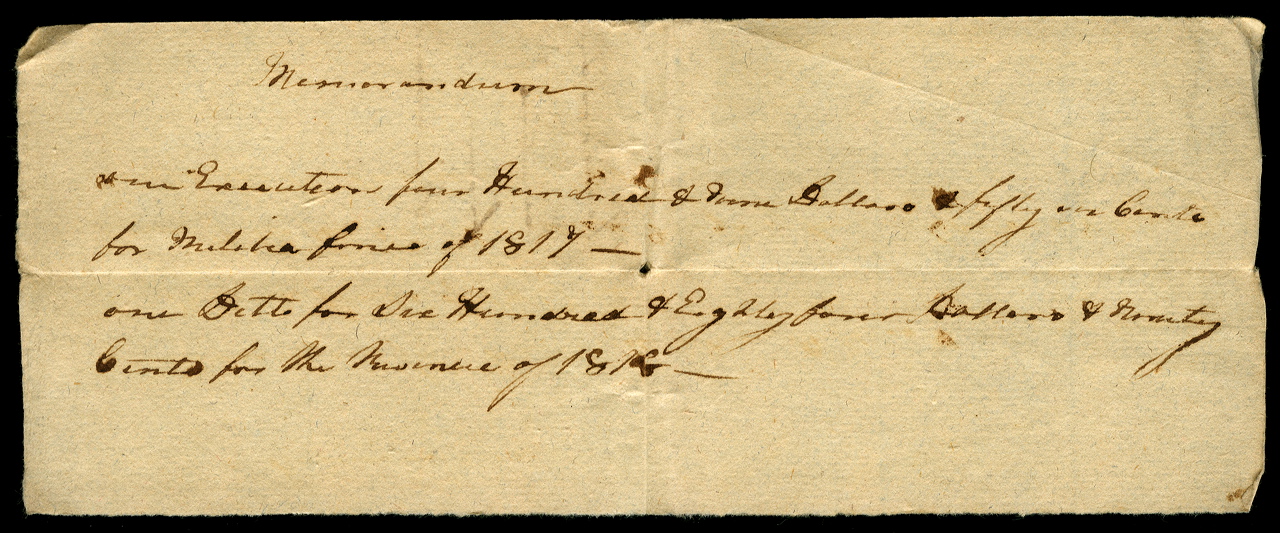 Memorandum
one Execution four Hundred & Dollars & fifty six Cents
for Militia fines of 1817 —
one Ditto for Six Hundred & Eighty four Dollars & Ninety
Cents for the of 1818 —